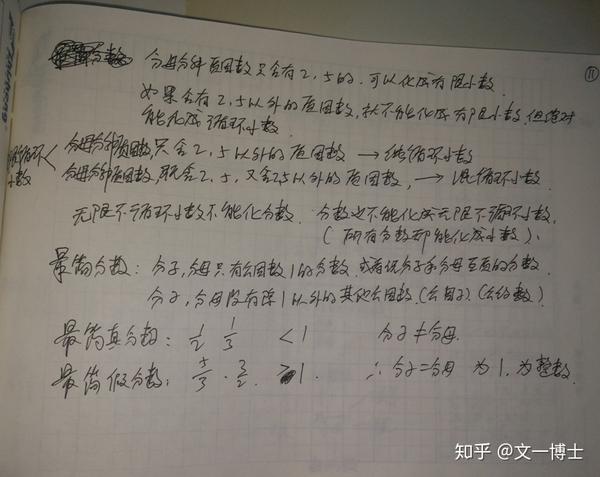 分数 分母分解质因数只含有2,5的.可以化成有限小数. ⑪
如果含有2,5以外的质因数,就不能化成有限小数.但绝对
能化成循环小数.
循环小数
分母分解质因数,只含2,5以外的质因数 → 纯循环小数
分母分解质因数,既含2,5,又含2,5以外的质因数, → 混循环小数
无限不循环小数不能化分数. 分数也不能化成无限不循环小数.
(所有分数都能化成小数).
最简分数: 分子,分母只有公因数1的分数.或者说分子和分母互质的分数.
分子,分母没有除1以外的其他公因数.(公因子)(公约数)
最简真分数: 1/2 1/3 <1 分子≠分母.
最简假分数: 5/3 · 3/2. >1. ∴分子=分母 为1.为整数.
知乎 @文一博士